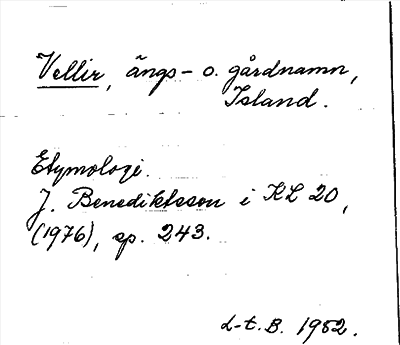 Vellir, ängs- o. gårdnamn,
Island.
Etymologi.
J. Benediktsson i KL 20,
(1976), sp. 243.
L-t. B. 1982.